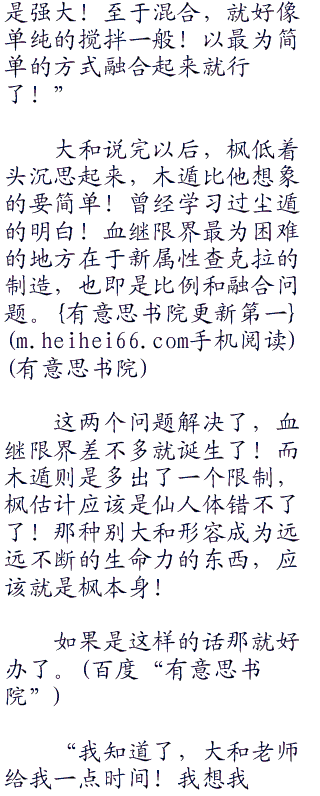 是强大！至于混合，就好像
单纯的搅拌一般！以最为简
单的方式融合起来就行
了！”
大和说完以后，枫低着
头沉思起来，木遁比他想象
的要简单！曾经学习过尘遁
的明白！血继限界最为困难
的地方在于新属性查克拉的
制造，也即是比例和融合问
题。{有意思书院更新第一}
(m.heihei66.com手机阅读)
(有意思书院)
这两个问题解决了，血
继限界差不多就诞生了！而
木遁则是多出了一个限制，
枫估计应该是仙人体错不了
了！那种别大和形容成为远
远不断的生命力的东西，应
该就是枫本身！
如果是这样的话那就好
办了。(百度“有意思书
院”)
“我知道了，大和老师
给我一点时间！我想我